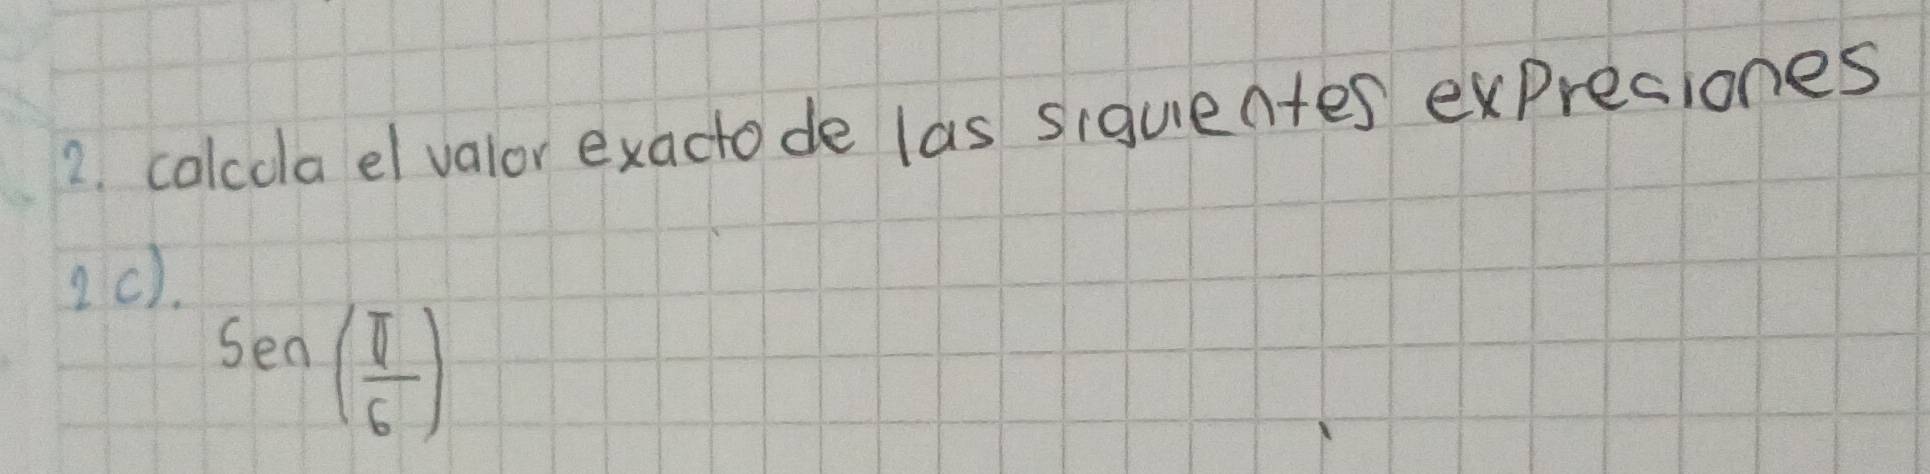 2. calcula el valor exacto de las siguientes expreciones
2 c).
Sen (π/6)